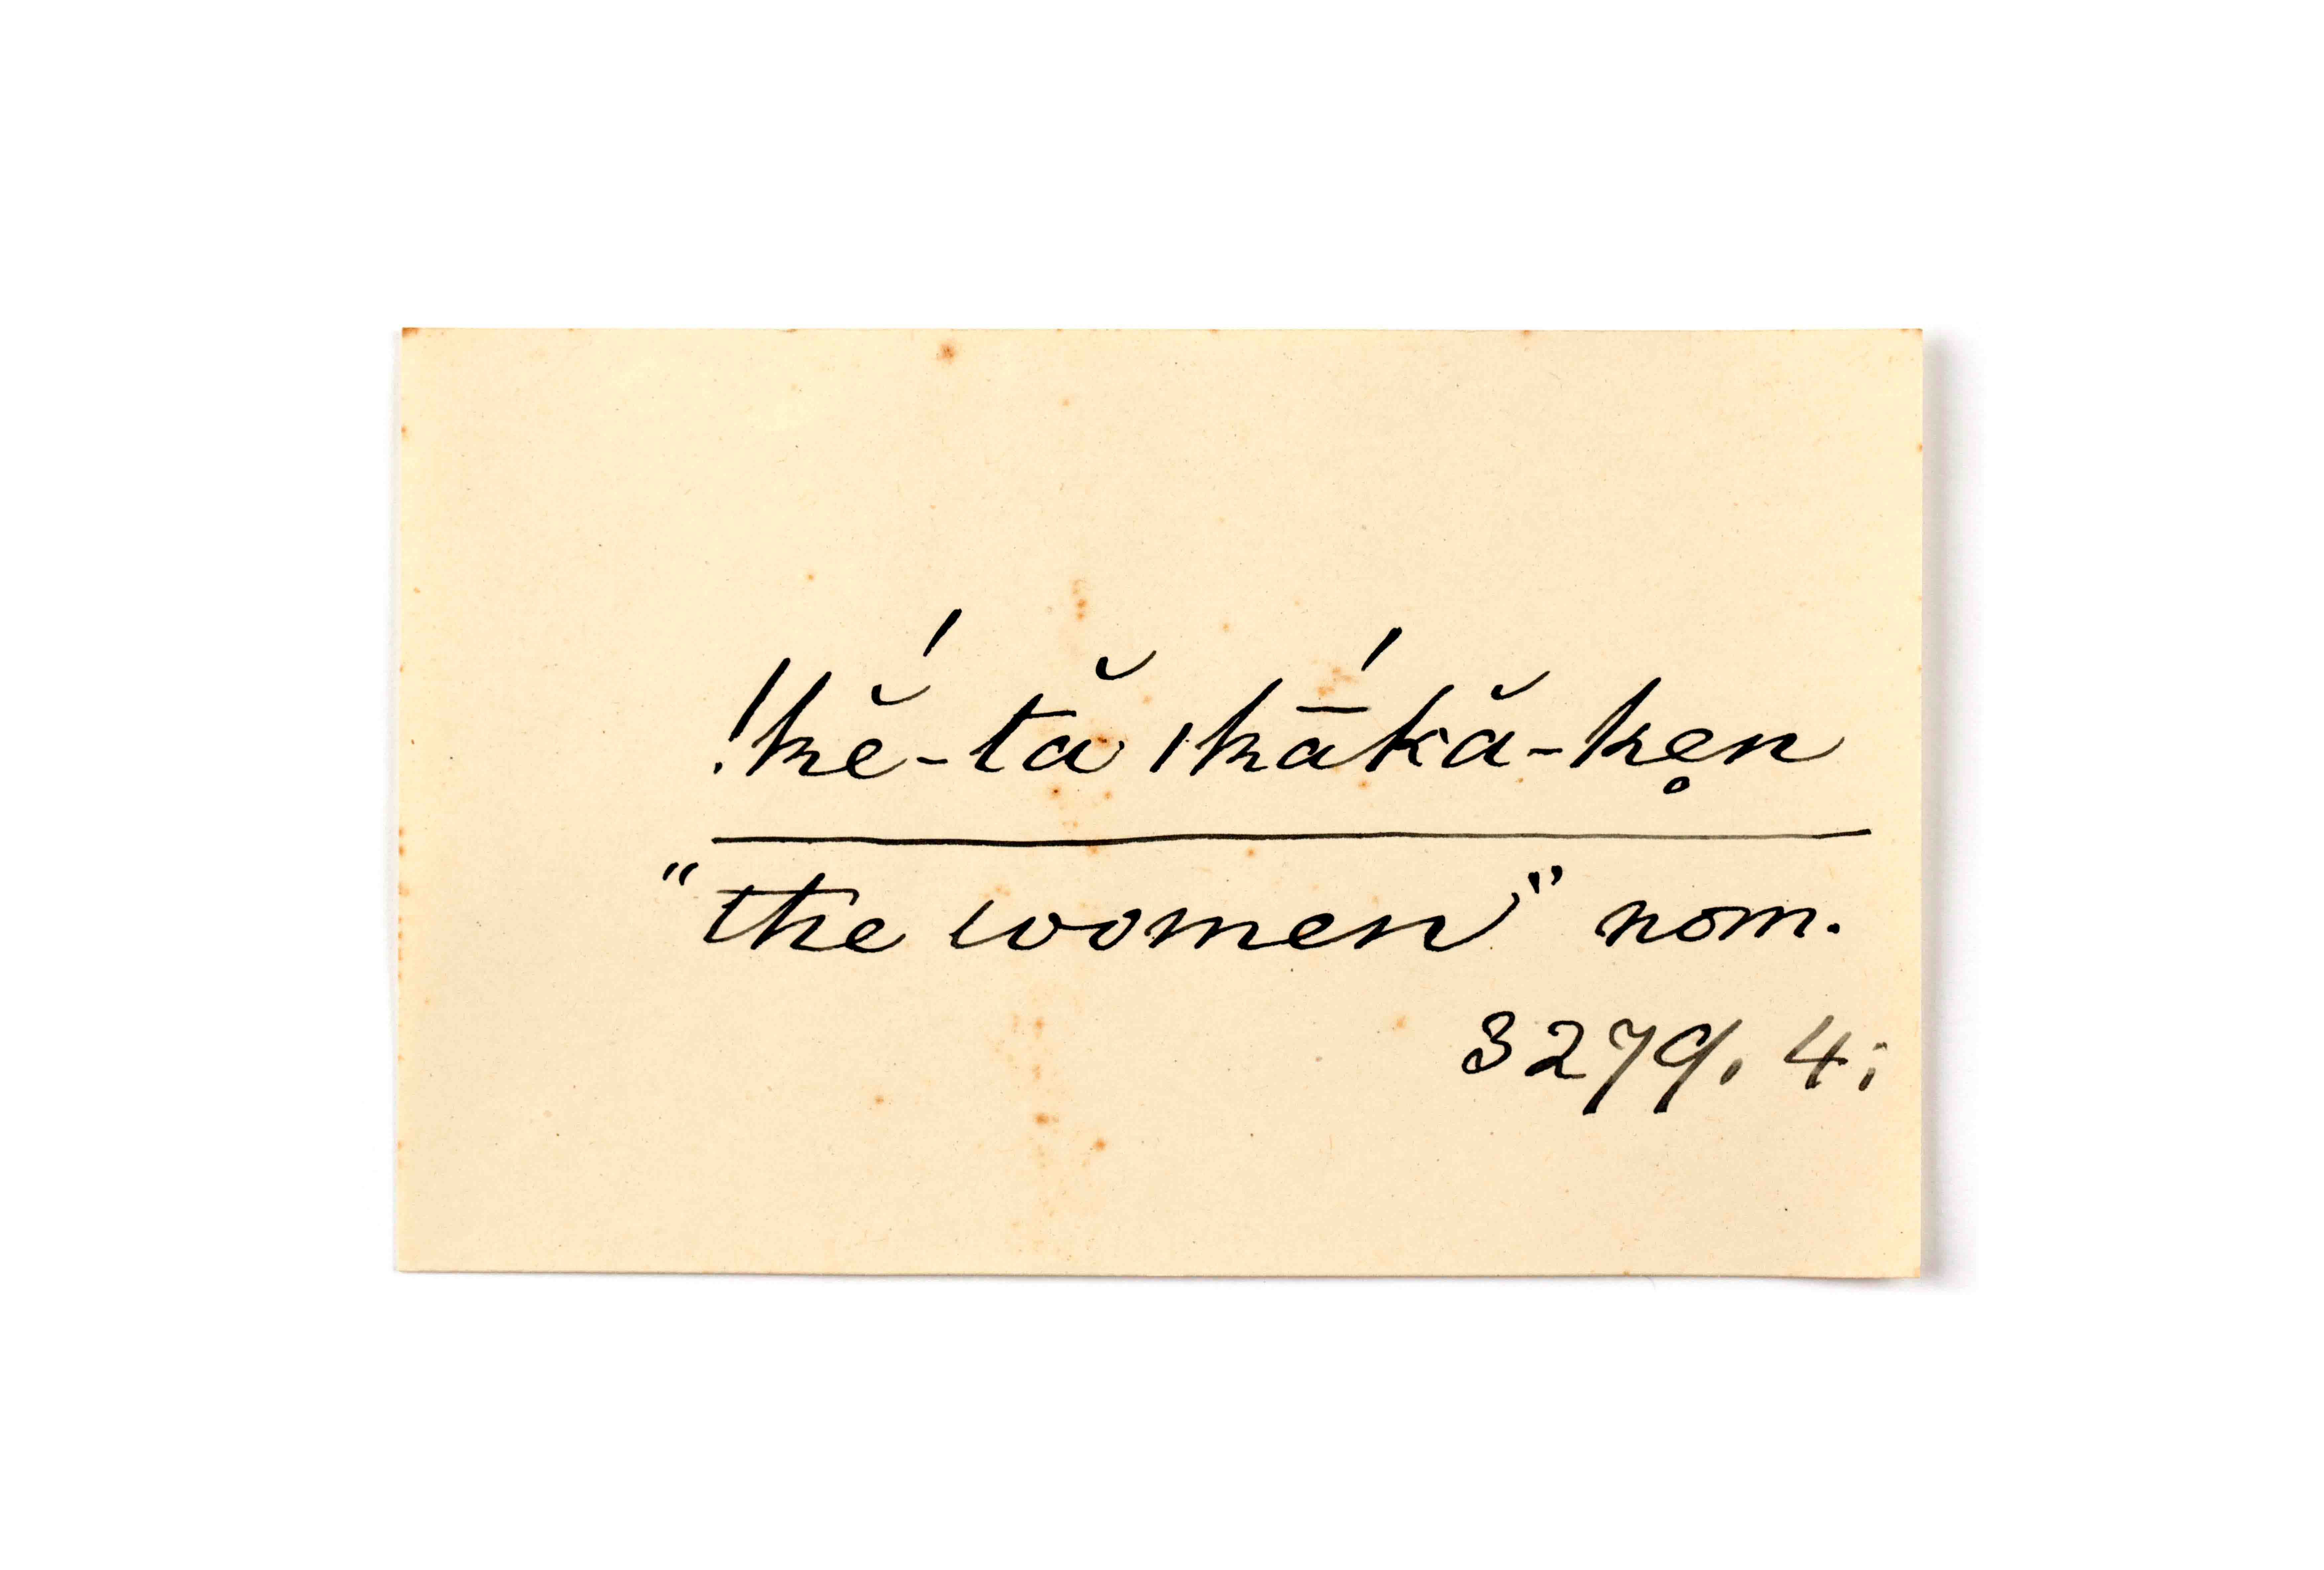 !kĕ́-tă ı̵kā́kă-ken̥
"the women" nom.
3279. 4.